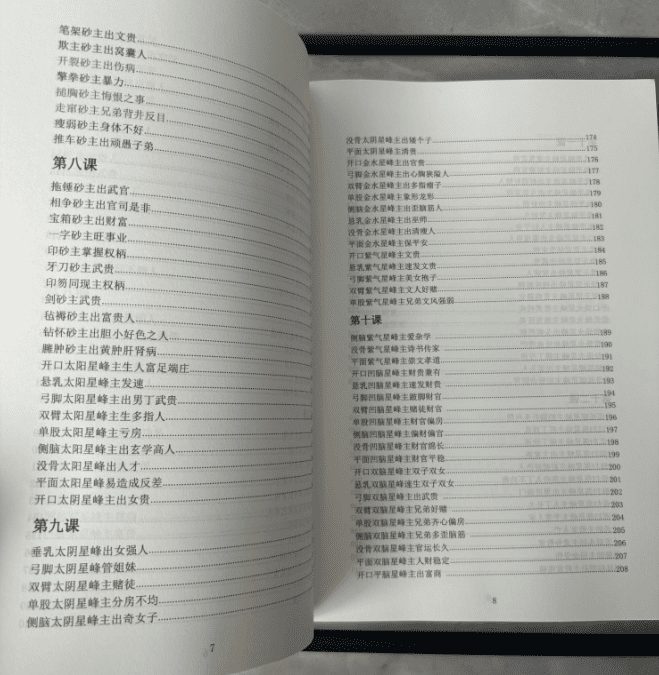 笔架砂主出文贵
欺主砂主出窝囊人
开裂砂主出伤病
擎拳砂主暴力
搥胸砂主悔恨之事
走窜砂主兄弟背井反目
瘦弱砂主身体不好
推车砂主出顽愚子弟
第八课
拖锤砂主出武官
相争砂主出官司是非
宝箱砂主出财富
一字砂主旺事业
印砂主掌握权柄
牙刀砂主武贵
印笏同现主权柄
剑砂主武贵
毡褥砂主出富贵人
钻怀砂主出胆小好色之人
臃肿砂主出黄肿肝肾病
开口太阳星峰主生人富足端庄
悬乳太阳星峰主发速
弓脚太阳星峰主出男丁武贵
双臂太阳星峰主生多指人
单股太阳星峰主亏房
侧脑太阳星峰主出玄学高人
没骨太阳星峰出人才
平面太阳星峰易造成反差
开口太阴星峰主出女贵
第九课
垂乳太阴星峰出女强人
弓脚太阴星峰管姐妹
双臂太阴星峰主赌徒
单股太阴星峰主分房不均
侧脑太阴星峰主出奇女子
7
没骨太阴星峰主出矮个子 174
平面太阴星峰主清贵 175
开口金水星峰主出官贵 176
弓脚金水星峰主出心胸狭隘人 177
双臂金水星峰主出多指瘤子 178
单股金水星峰主象形龙形 179
侧脑金水星峰主出歪脑筋人 180
悬乳金水星峰主出巫师 181
没骨金水星峰主出清瘦人 182
平面金水星峰主保平安 183
开口紫气星峰主文贵 184
悬乳紫气星峰主速发文贵 185
弓脚紫气星峰主美女抱子 186
双臂紫气星峰主文人好赌 187
单股紫气星峰主兄弟文风强弱 188
第十课
侧脑紫气星峰主爱杂学 189
没骨紫气星峰主诗书传家 190
平面紫气星峰主崇文孝道 191
开口凹脑星峰主财贵兼有 192
悬乳凹脑星峰主速发财贵 193
弓脚凹脑星峰主跛脚财官 194
双臂凹脑星峰主赌徒财官 195
单股凹脑星峰主财官偏房 196
侧脑凹脑星峰主偏财偏官 197
没骨凹脑星峰主财官绵长 198
平面凹脑星峰主财官平稳 199
开口双脑星峰主双子双女 200
悬乳双脑星峰速生双子双女 201
弓脚双脑星峰主出武贵 202
双臂双脑星峰主兄弟好赌 203
单股双脑星峰主兄弟齐心偏房 204
侧脑双脑星峰主兄弟多歪脑筋 205
没骨双脑星峰主官运长久 206
平面双脑星峰主人财稳定 207
开口平脑星峰主出富商 208
8